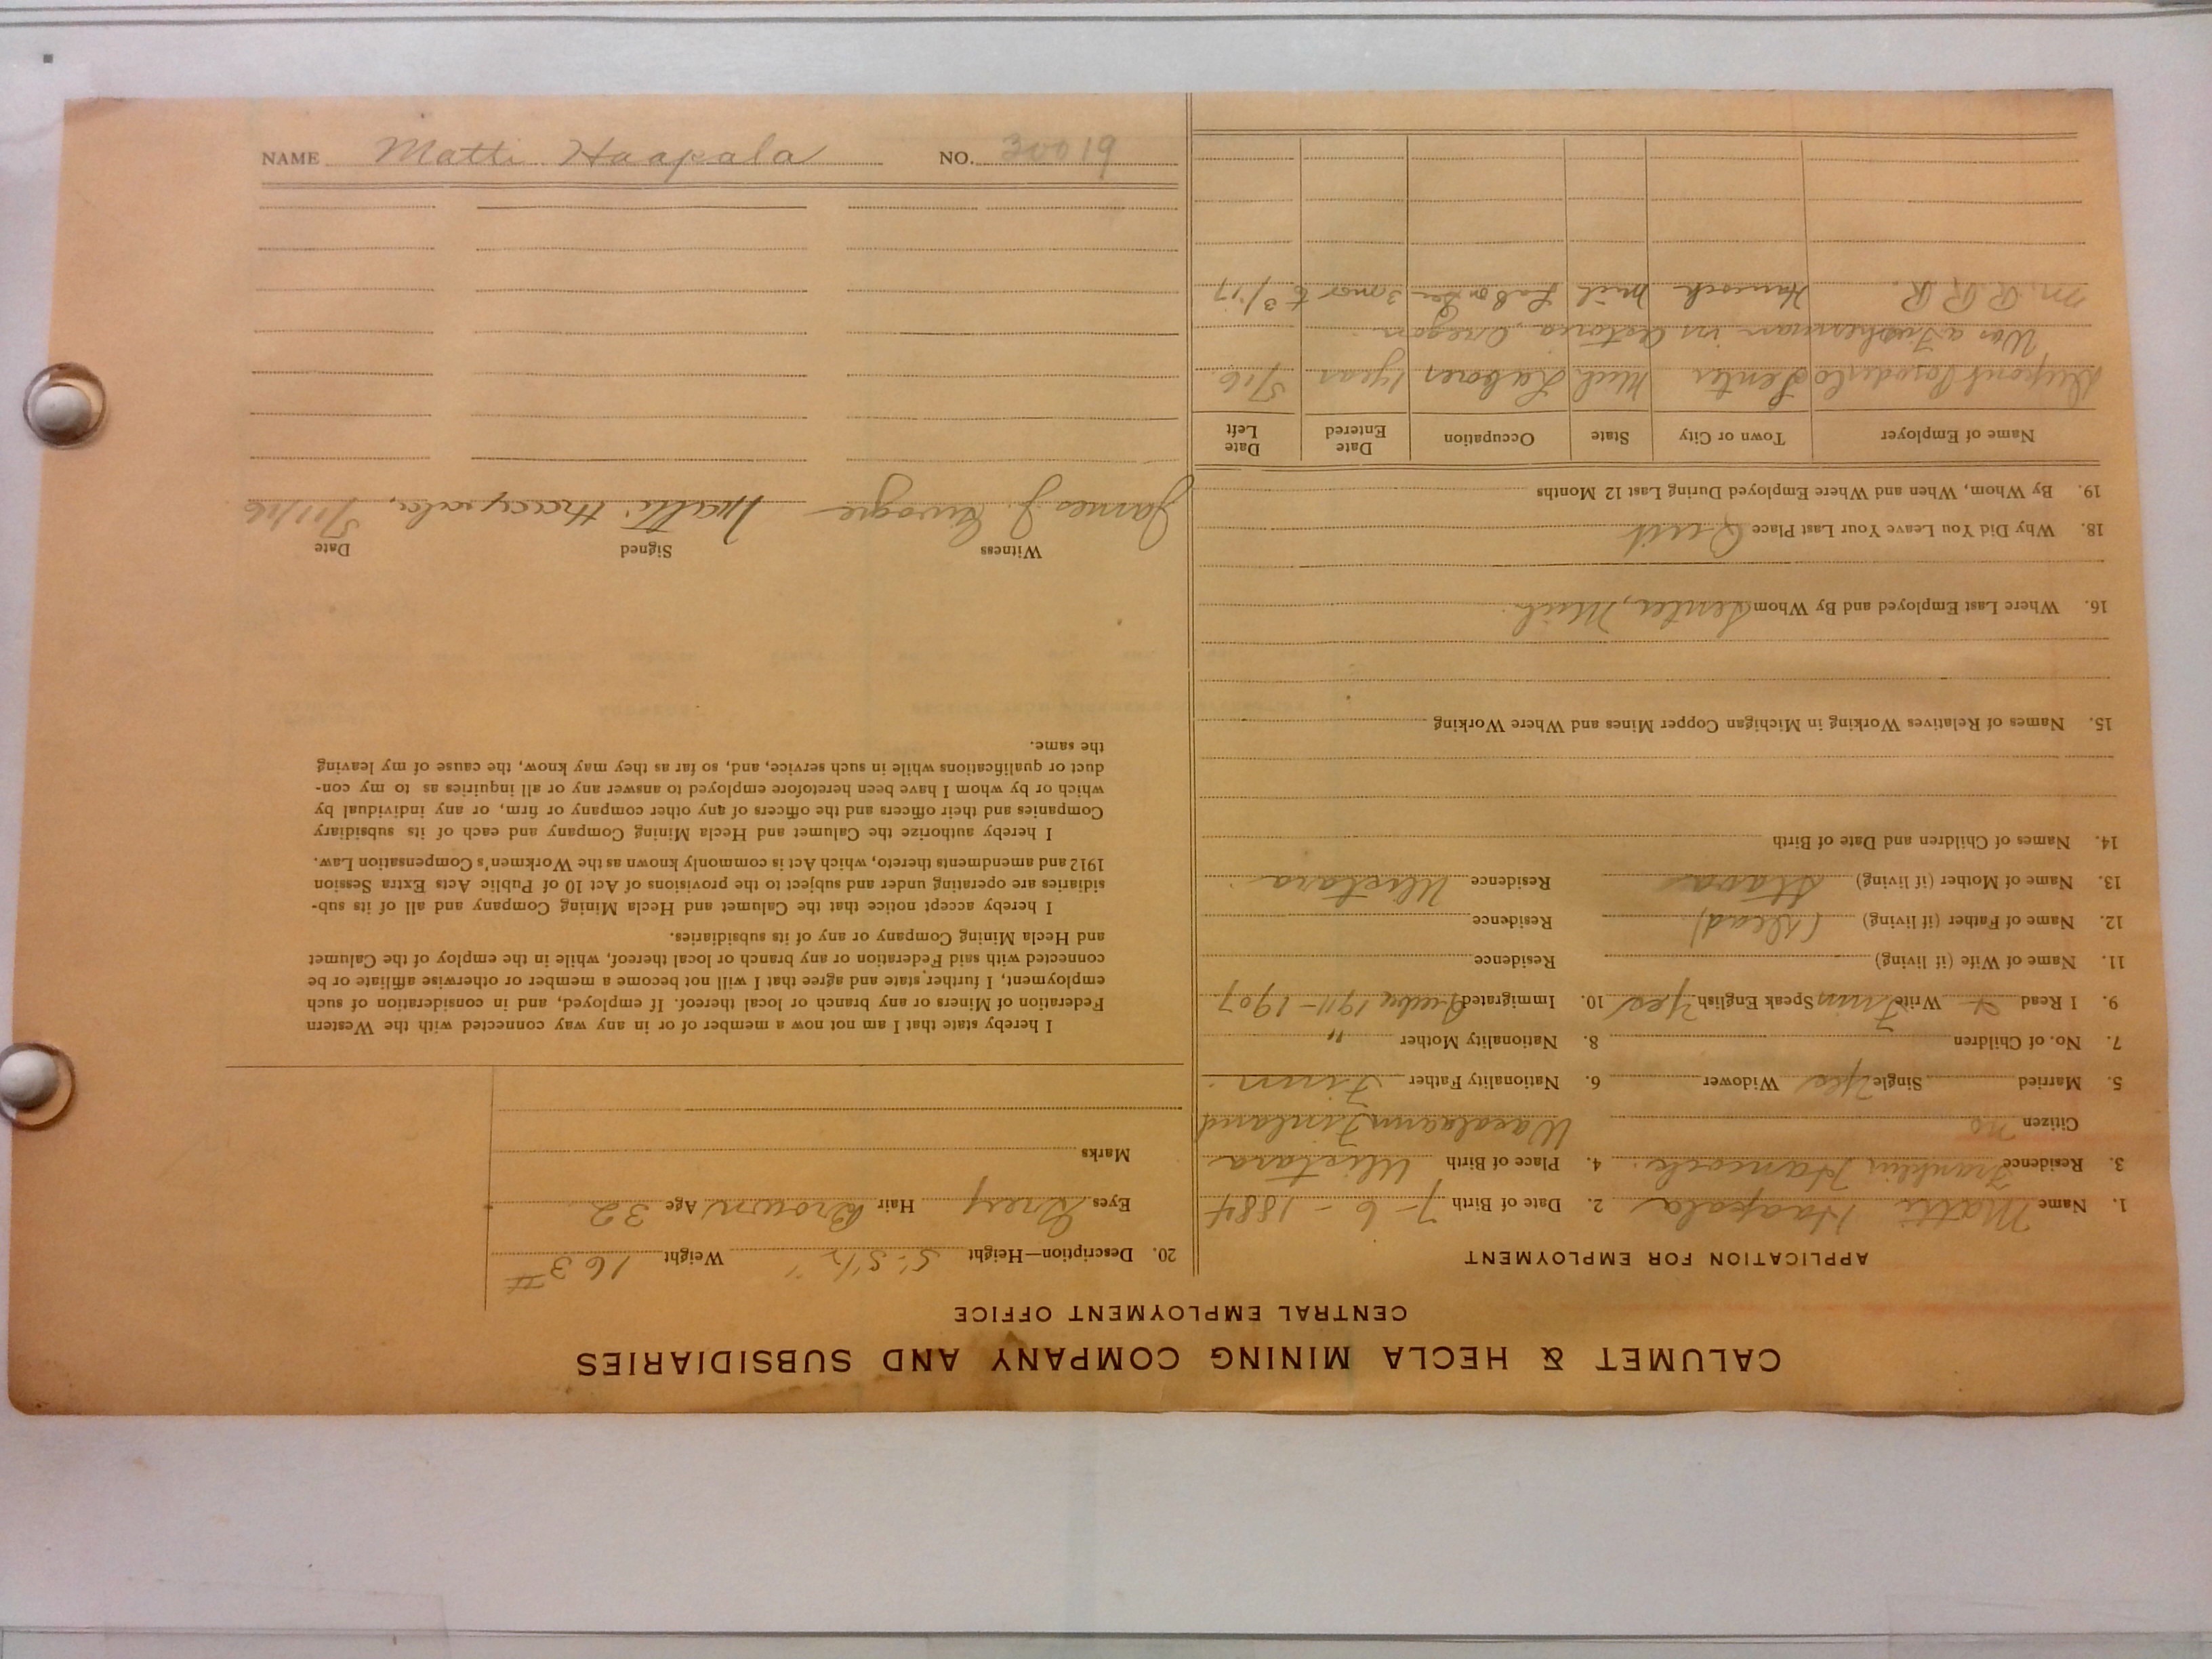 CALUMET & HECLA MINING COMPANY AND SUBSIDIARIES
CENTRAL EMPLOYMENT OFFICE
APPLICATION FOR EMPLOYMENT
1. Name Matti Haapala 2. Date of Birth 7-6-1884
3. Residence Franklin Hancock. 4. Place of Birth Ulistara
Citizen no Waasalaani Finland
5. Married Single Yes Widower 6. Nationality Father Finn.
7. No. of Children 8. Nationality Mother "
9. I Read & Write Finn Speak English Yes 10. Immigrated 1911-1907
11. Name of Wife (if living) Residence
12. Name of Father (if living) (Dead) Residence
13. Name of Mother (if living) Residence Ulistara
14. Names of Children and Date of Birth
15. Names of Relatives Working in Michigan Copper Mines and Where Working
16. Where Last Employed and By Whom Senter, Mich.
18. Why Did You Leave Your Last Place Quit
19. By Whom, When and Where Employed During Last 12 Months
Name of Employer Town or City State Occupation Date Entered Date Left
Dupont Powder Co Senter Mich Laborer 1 year 5/16
Was a Fisherman in Astoria, Oregon
M. R. R. R. Hancock Mich Laborer 3 mos to 3/17
20. Description—Height 5' 5 1/2" Weight 163 #
Eyes Grey Hair Brown Age 32
Marks
I hereby state that I am not now a member of or in any way connected with the Western
Federation of Miners or any branch or local thereof. If employed, and in consideration of such
employment, I further state and agree that I will not become a member or otherwise affiliate or be
connected with said Federation or any branch or local thereof, while in the employ of the Calumet
and Hecla Mining Company or any of its subsidiaries.
I hereby accept notice that the Calumet and Hecla Mining Company and all of its sub-
sidiaries are operating under and subject to the provisions of Act 10 of Public Acts Extra Session
1912 and amendments thereto, which Act is commonly known as the Workmen's Compensation Law.
I hereby authorize the Calumet and Hecla Mining Company and each of its subsidiary
Companies and their officers and the officers of any other company or firm, or any individual by
which or by whom I have been heretofore employed to answer any or all inquiries as to my con-
duct or qualifications while in such service, and, so far as they may know, the cause of my leaving
the same.
Witness Signed Date
James J. Matti Haapala, 5/11/16
NAME Matti Haapala NO. 30019